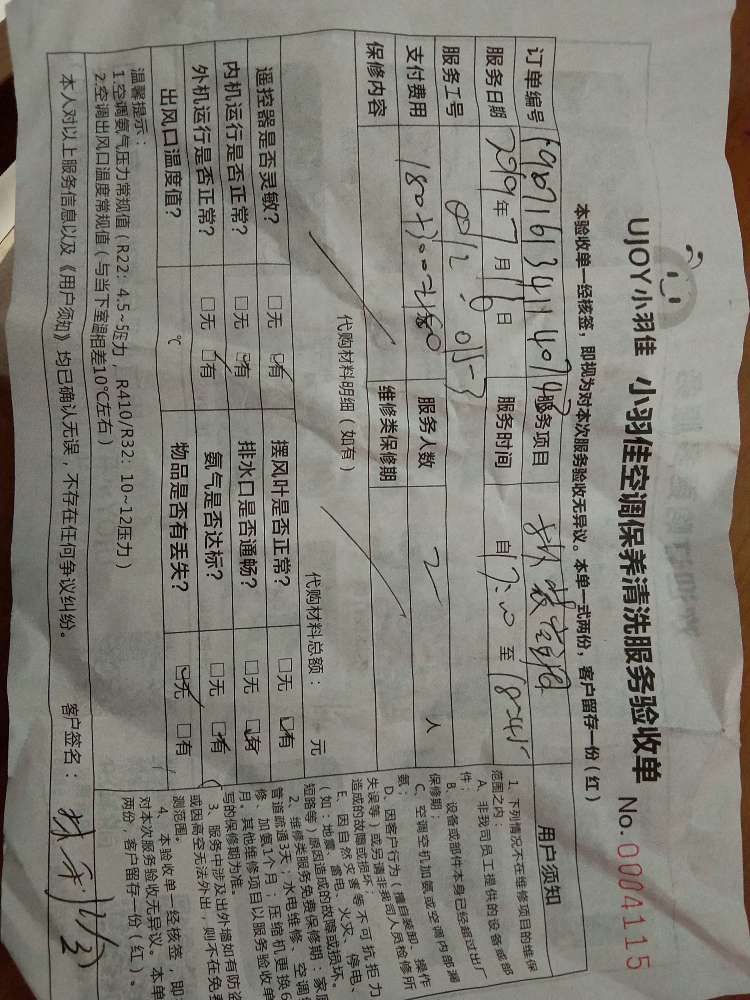 UJOY小羽佳 小羽佳空调保养清洗服务验收单 No.0004115
本验收单一经核签，即视为对本次服务验收无异议。本单一式两份，客户留存一份（红）
订单编号
服务项目
服务日期 2019年7月13日 服务时间 自17:00至18:45
服务工号
支付费用 服务人数 2 人
保修内容 维修类保修期
代购材料明细（如有） 代购材料总额： 元
遥控器是否灵敏？ □无 □有 摆风叶是否正常？ □无 □有
内机运行是否正常？ □无 □有 排水口是否通畅？ □无 □有
外机运行是否正常？ □无 □有 氨气是否达标？ □无 □有
出风口温度值？ ℃ 物品是否有丢失？ □无 □有
温馨提示：
1.空调氨气压力常规值（R22：4.5~5压力，R410/R32：10~12压力）
2.空调出风口温度常规值（与当下室温相差10℃左右）
本人对以上服务信息以及《用户须知》均已确认无误，不存在任何争议纠纷。 客户签名：
用户须知
1、下列情况不在维修项目的维保
范围之内：
A、非我司员工提供的设备或部
件；
B、设备或部件本身已经超过出厂
保修期；
C、空调空机加氨或空调内部漏
氨；
D、因客户行为（擅自装卸、操作
失误等）或另请非我司人员检修所
造成的故障或损坏；
E、因自然灾害等不可抗拒力
（如：地震、雷电、火灾、停电、
短路等）原因造成的故障或损坏。
2、维修类服务免费保修期：家
管道疏通3天；水电维修、空调
修、加氨1个月；压缩机更换6
月。其他维修项目以服务验收单
写的保修期为准。
3、服务中涉及出外墙如有防盗
或因高空无法外出，则不在免
测范围。
4、本验收单一经核签，即
对本次服务验收无异议。本单
两份，客户留存一份（红）。